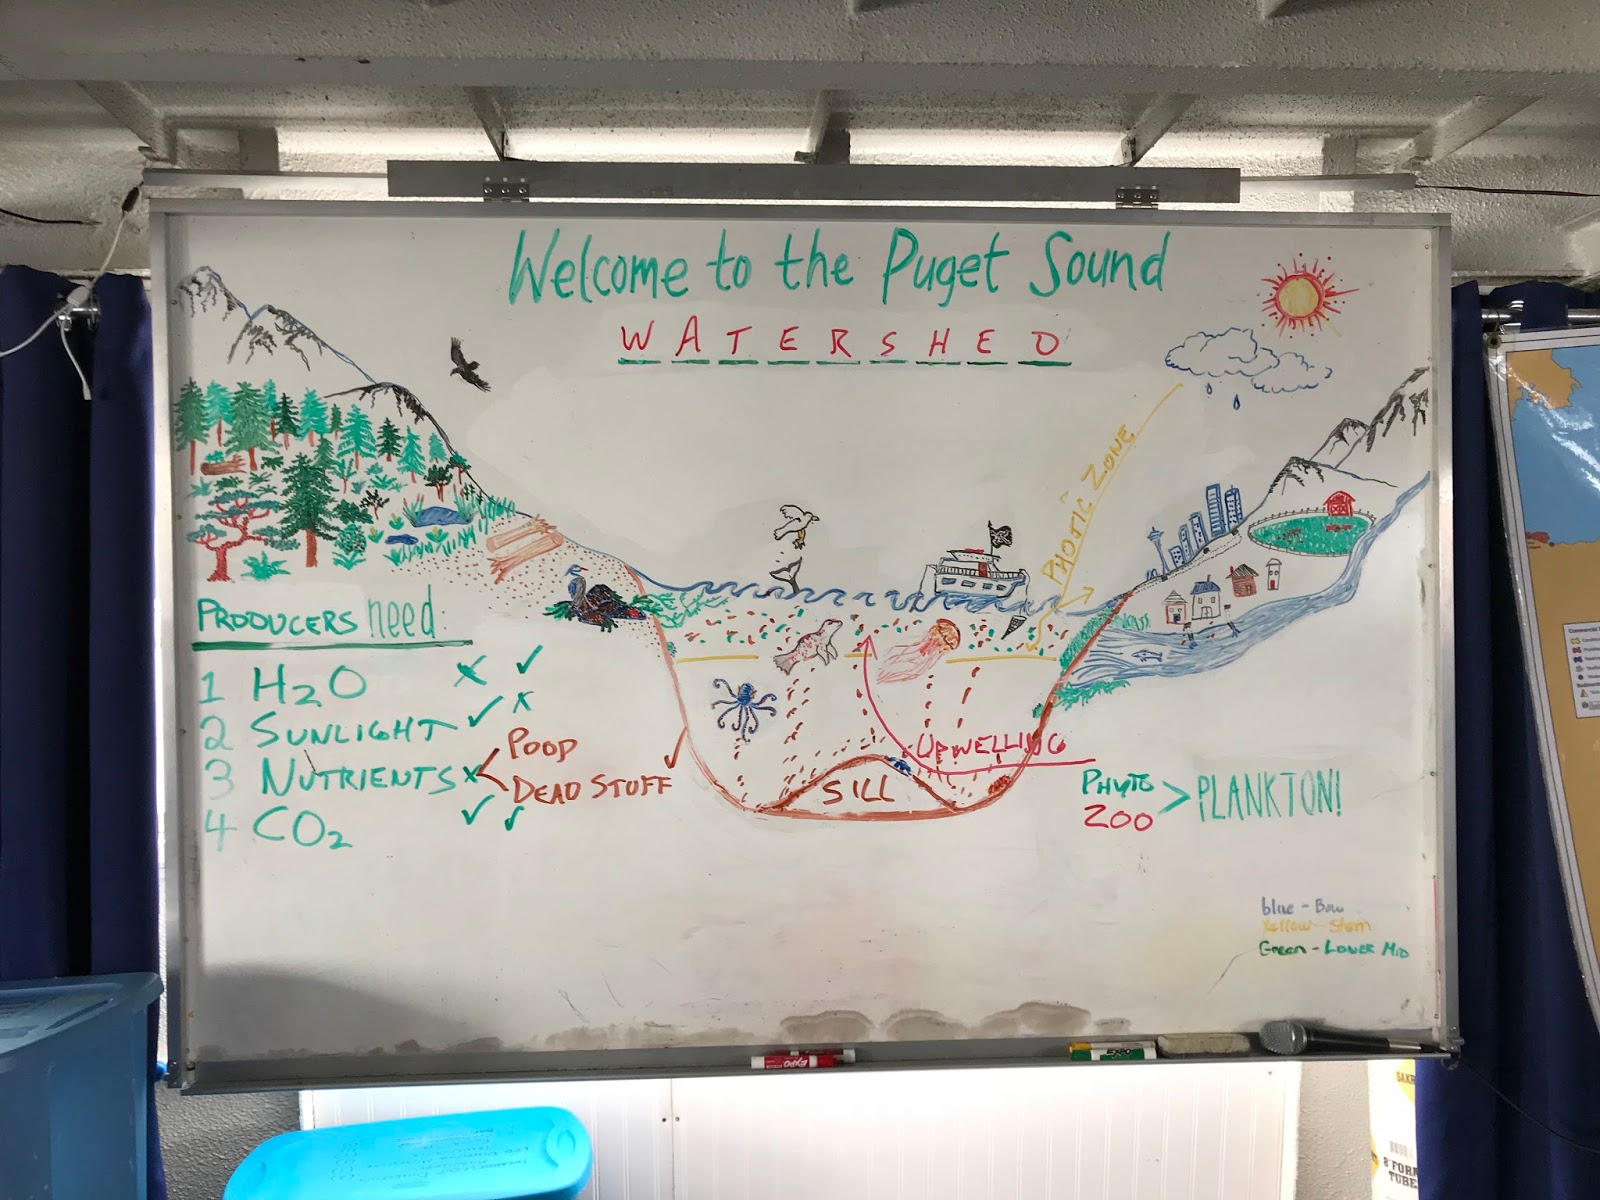 Welcome to the Puget Sound
WATERSHED
PHOTIC ZONE
PRODUCERS need:
1 H2O
2 SUNLIGHT
3 NUTRIENTS
POOP
DEAD STUFF
4 CO2
UPWELLING
SILL
PHYTO
ZOO
> PLANKTON!
blue - Bow
Yellow - Stern
Green - LOWER MID
EXPO
EXPO
8" FORM
TUBE